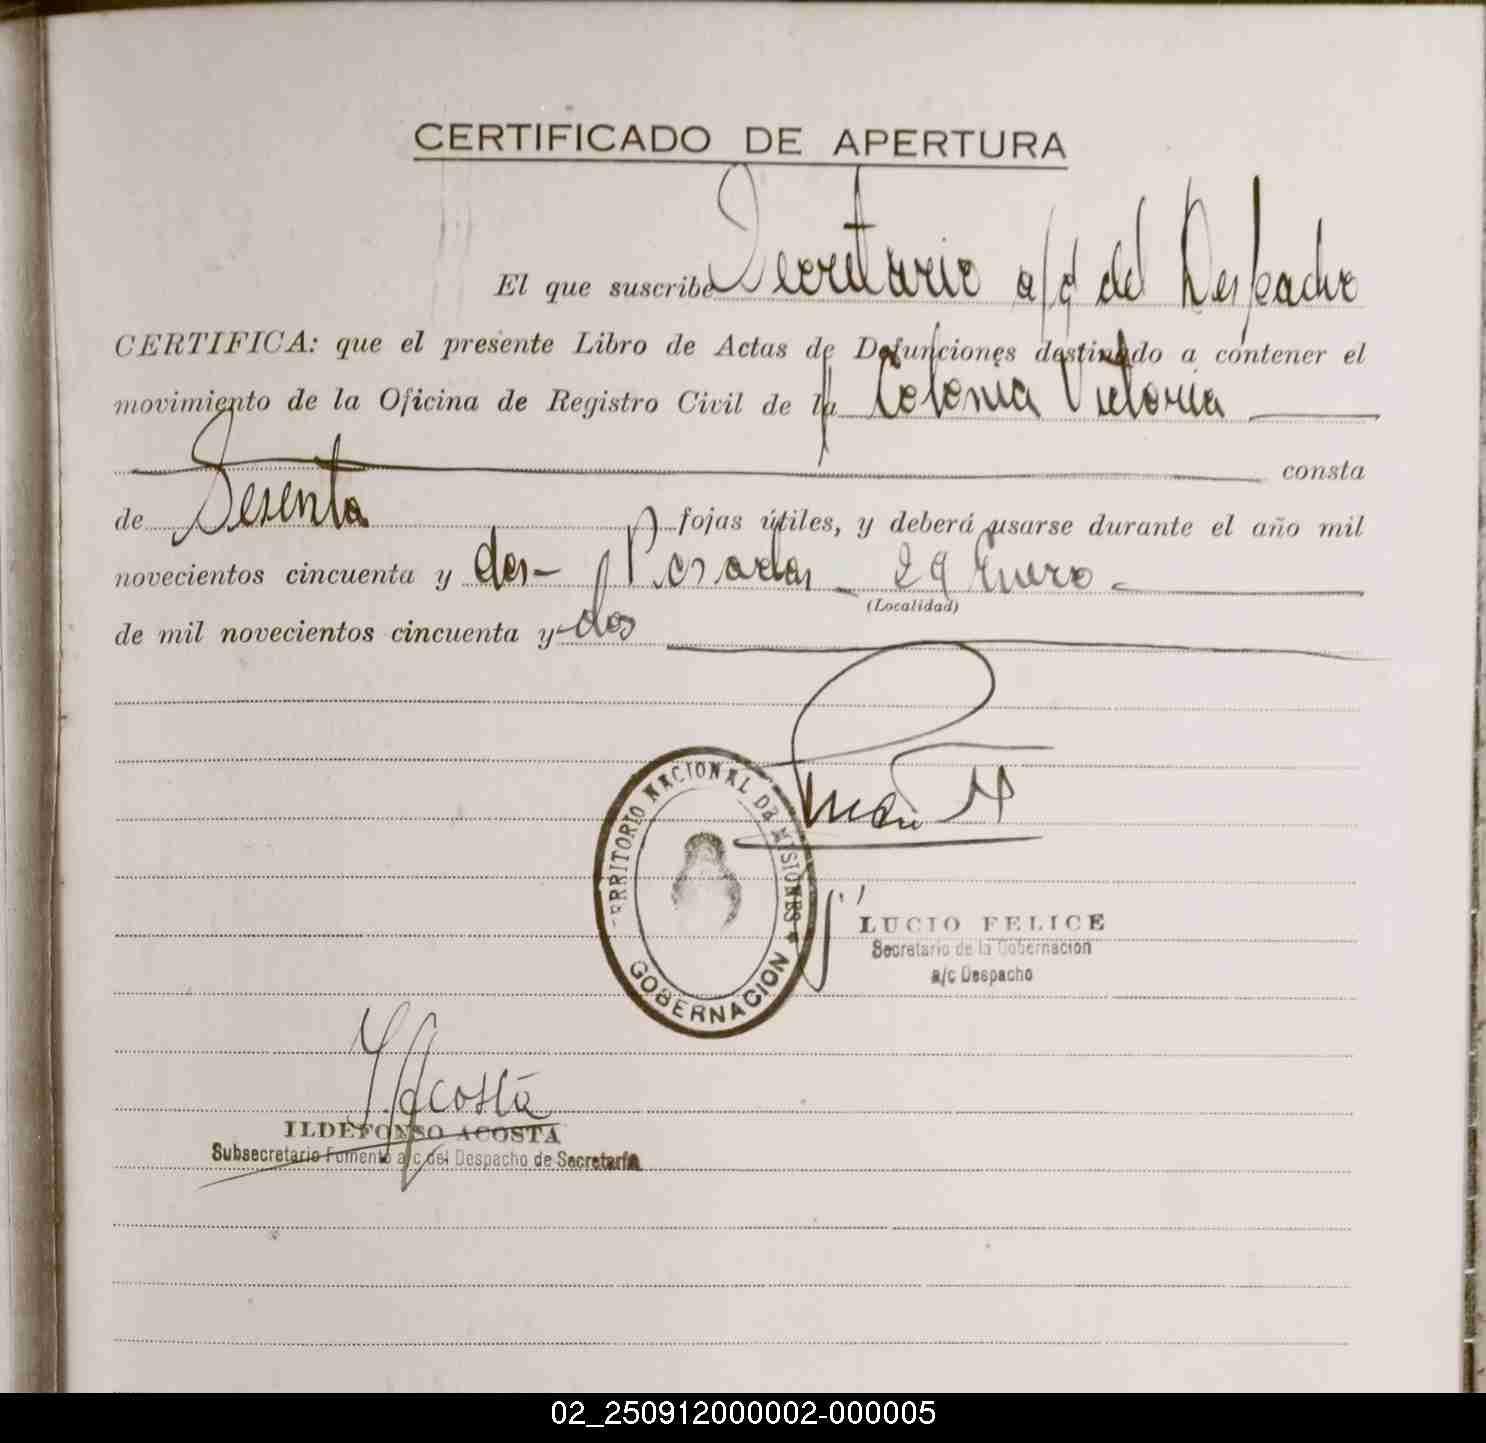 CERTIFICADO DE APERTURA
El que suscribe Secretario a/c del Despacho
CERTIFICA: que el presente Libro de Actas de Defunciones destinado a contener el
movimiento de la Oficina de Registro Civil de la Colonia Victoria
consta
de Sesenta fojas útiles, y deberá usarse durante el año mil
novecientos cincuenta y dos- Posadas 29 Enero
(Localidad)
de mil novecientos cincuenta y dos
TERRITORIO NACIONAL DE MISIONES
GOBERNACION
LUCIO FELICE
Secretario de la Gobernación
a/c Despacho
I. Acosta
ILDEFONSO ACOSTA
Subsecretario Fomento a/c del Despacho de Secretaría
02_250912000002-000005